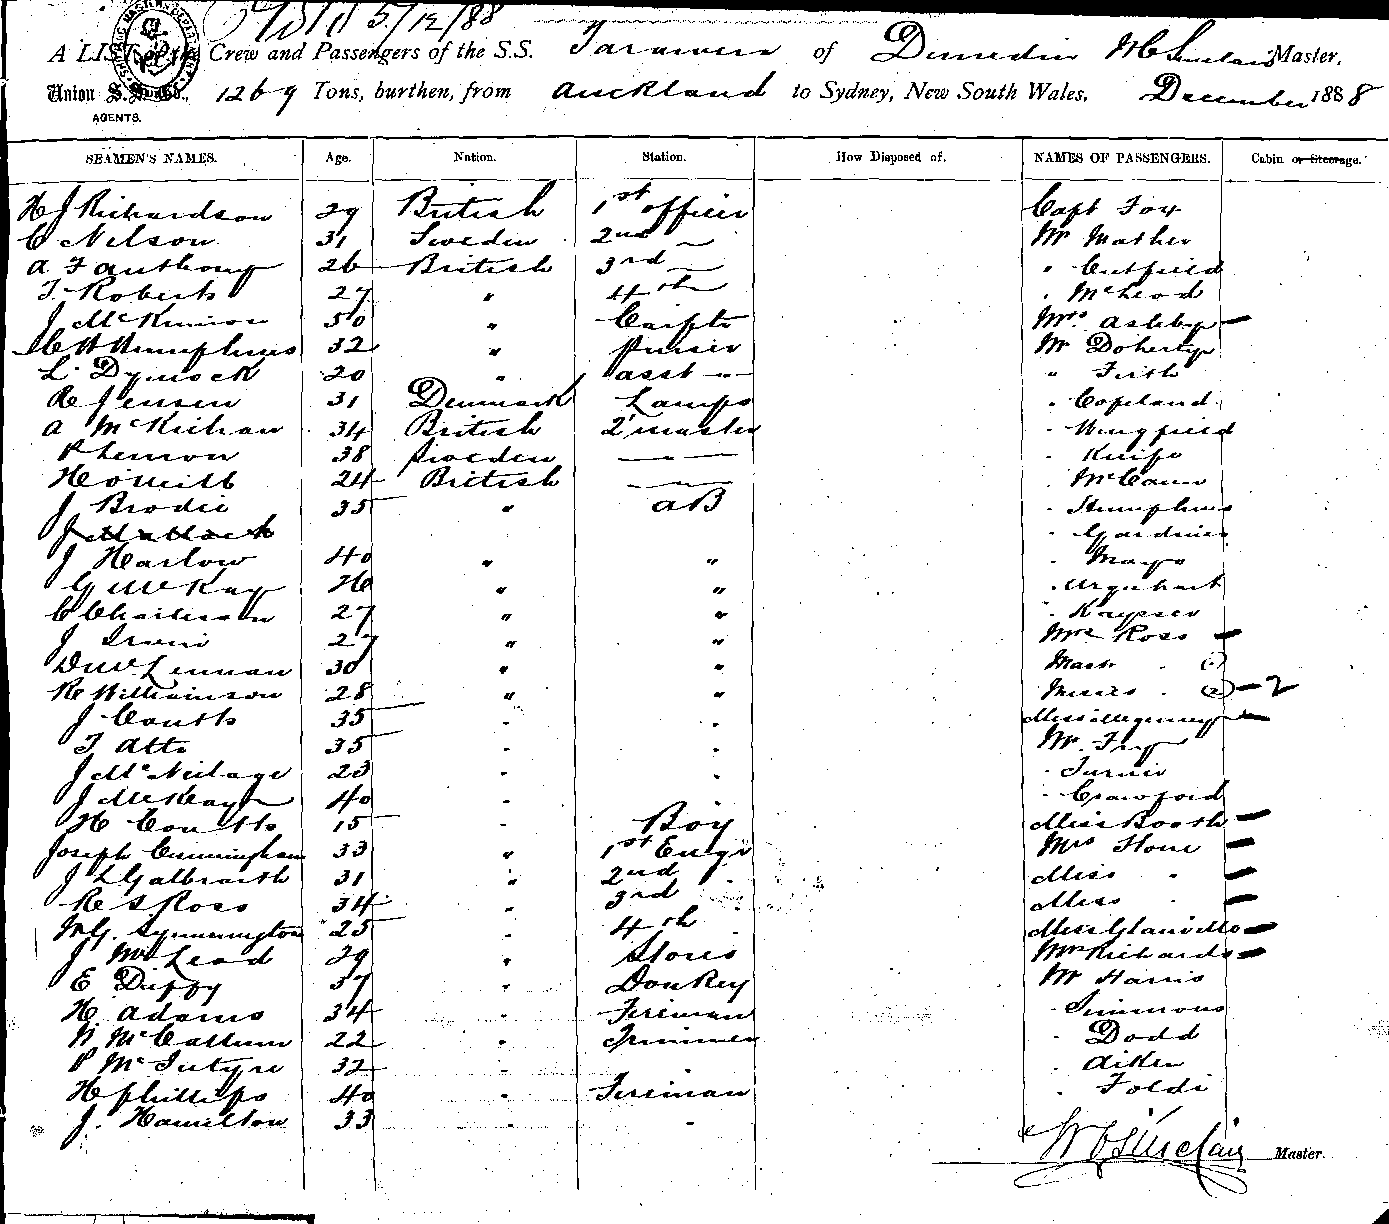 5/12/88
A LIST of the Crew and Passengers of the S.S. Tarawera of Dunedin Sinclair Master,
Union S.S. Co Ld., 1269 Tons, burthen, from Auckland to Sydney, New South Wales, December 1888
AGENTS.
SEAMEN'S NAMES. Age. Nation. Station. How Disposed of. NAMES OF PASSENGERS. Cabin or Steerage.
H J Richardson 29 British 1st officer Capt Fox
C Nelson 31 Sweden 2nd " Mr Mather
A F Anthony 26 British 3rd " " Cutfield
T. Roberts 27 " 4th " McLeod
J McKinnon 50 " Carptr Mrs Ashby
C H Humphries 32 " Purser Mr Doherty
L. Dymock 20 " asst " " Firth
R Jensen 31 Denmark Lamps " Copeland
A McKichan 34 British 2 master " Wingfield
P Lennon 38 Sweden " Knipe
H O'Neill 24 British " McCann
J Brodie 35 " AB " Humphries
J " Gardiner
J Harlow 40 " " " Mayo
G McKay " " " Urquhart
C Charleson 27 " " " Kayser
J Irvin 27 " " Mrs Ross
D McLennan 30 " " Mastr "
R Williamson 28 " " Misses " (2) 2
J Coutts 35 " " Miss
T Atto 35 " " Mr. Fry
J McNeilage 23 " " " Turner
J McKay 40 " " Crawford
H Coutts 15 " Boy Miss Booth
Joseph Cunningham 33 " 1st Engr Mrs Stone
J L Galbraith 31 " 2nd Miss "
R S Ross 34 " 3rd Miss "
W G. Symmington 25 " 4th Miss Glanville
J McLeod 29 " Stores Mrs Richards
E Duffy 37 " Donkey Mr Harris
H Adams 34 " Fireman " Simmons
N McCallum 22 " Trimmer " Dodd
P McIntyre 32 " " " Aitken
H Phillips 40 " Fireman " Foldi
J. Hamilton 33 " "
Sinclair Master.